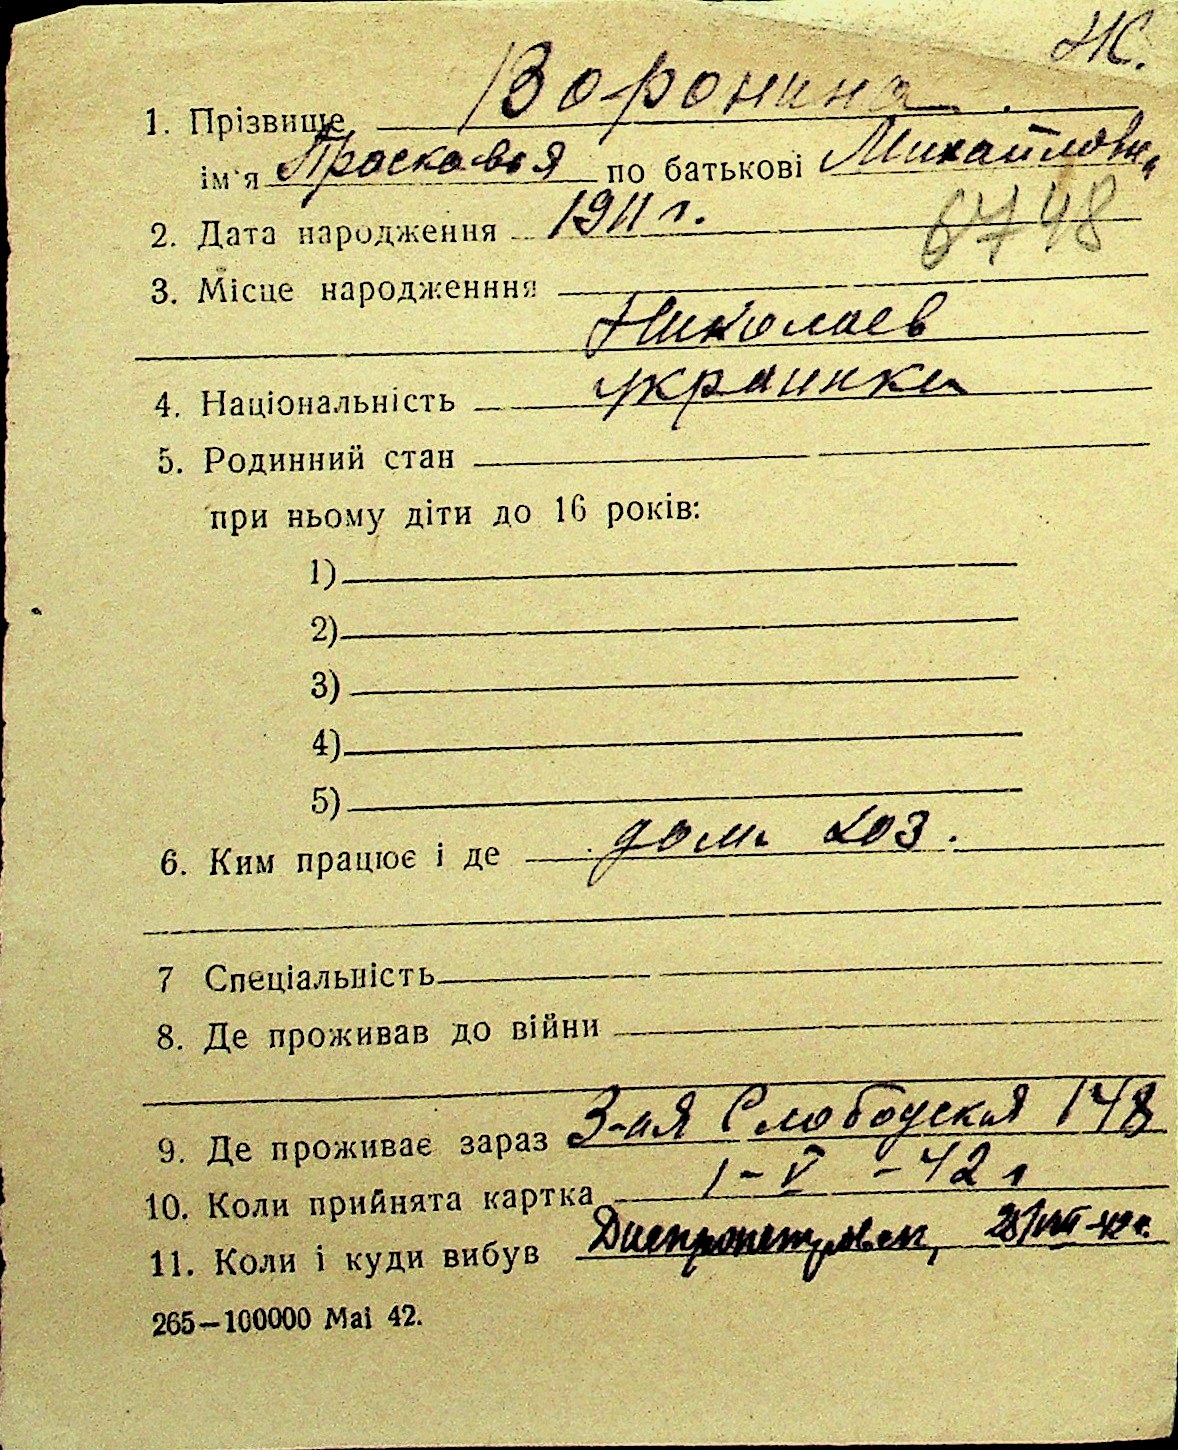 Ж.
1. Прізвище Воронина
ім'я Прасковья по батькові Михайловн.
2. Дата народження 1911 г.
6748
3. Місце народженння
Николаев
4. Національність украинка
5. Родинний стан
при ньому діти до 16 років:
1)
2)
3)
4)
5)
6. Ким працює і де дом. хоз.
7 Спеціальність
8. Де проживав до війни
9. Де проживає зараз 3-ая Слободская 148
10. Коли прийнята картка 1-V-42 г
11. Коли і куди вибув Днепропетровск, 28/VIII-42 г.
265—100000 Маі 42.